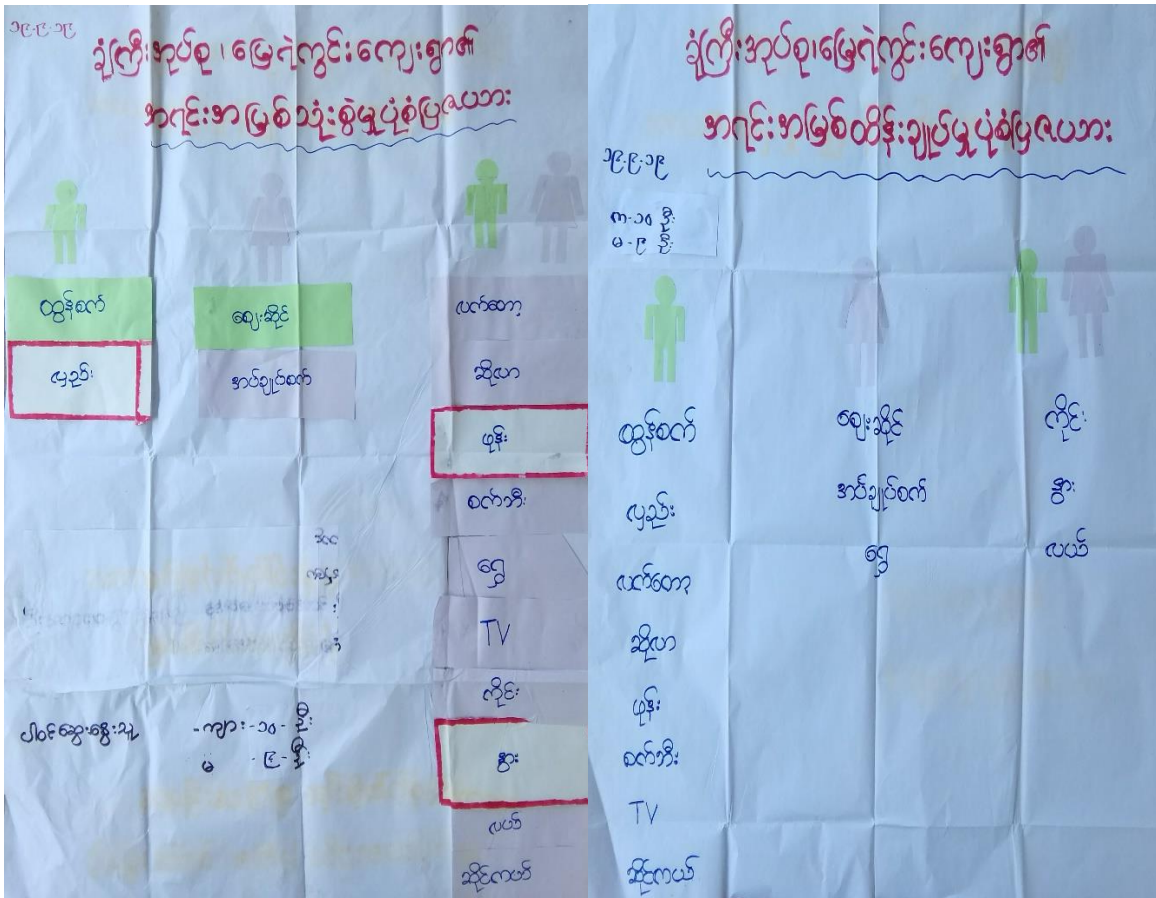 ၁၉-၉-၁၉
ခုံကြီးအုပ်စု ၊ မြေရဲကွင်းကျေးရွာ၏
အရင်းအမြစ်သုံးစွဲမှုပုံစံပြဇယား
ထွန်စက်
လှည်း
ဈေးဆိုင်
အပ်ချုပ်စက်
လက်တော့
ဆိုလာ
ဖုန်း
စက်ဘီး
ရွှေ
TV
ကိုင်း
နွား
လယ်
ဆိုင်ကယ်
ပါဝင်ဆွေးနွေးသူ
-ကျား-၁၀-ဦး
မ -၉-ဦး
ခုံကြီးအုပ်စု၊မြေရဲကွင်းကျေးရွာ၏
အရင်းအမြစ်ထိန်းချုပ်မှုပုံစံပြဇယား
၁၉-၉-၁၉
က-၁၀ ဦး
မ-၉ ဦး
ထွန်စက်
လှည်း
လက်တော့
ဆိုလာ
ဖုန်း
စက်ဘီး
TV
ဆိုင်ကယ်
ဈေးဆိုင်
အပ်ချုပ်စက်
ရွှေ
ကိုင်း
နွား
လယ်